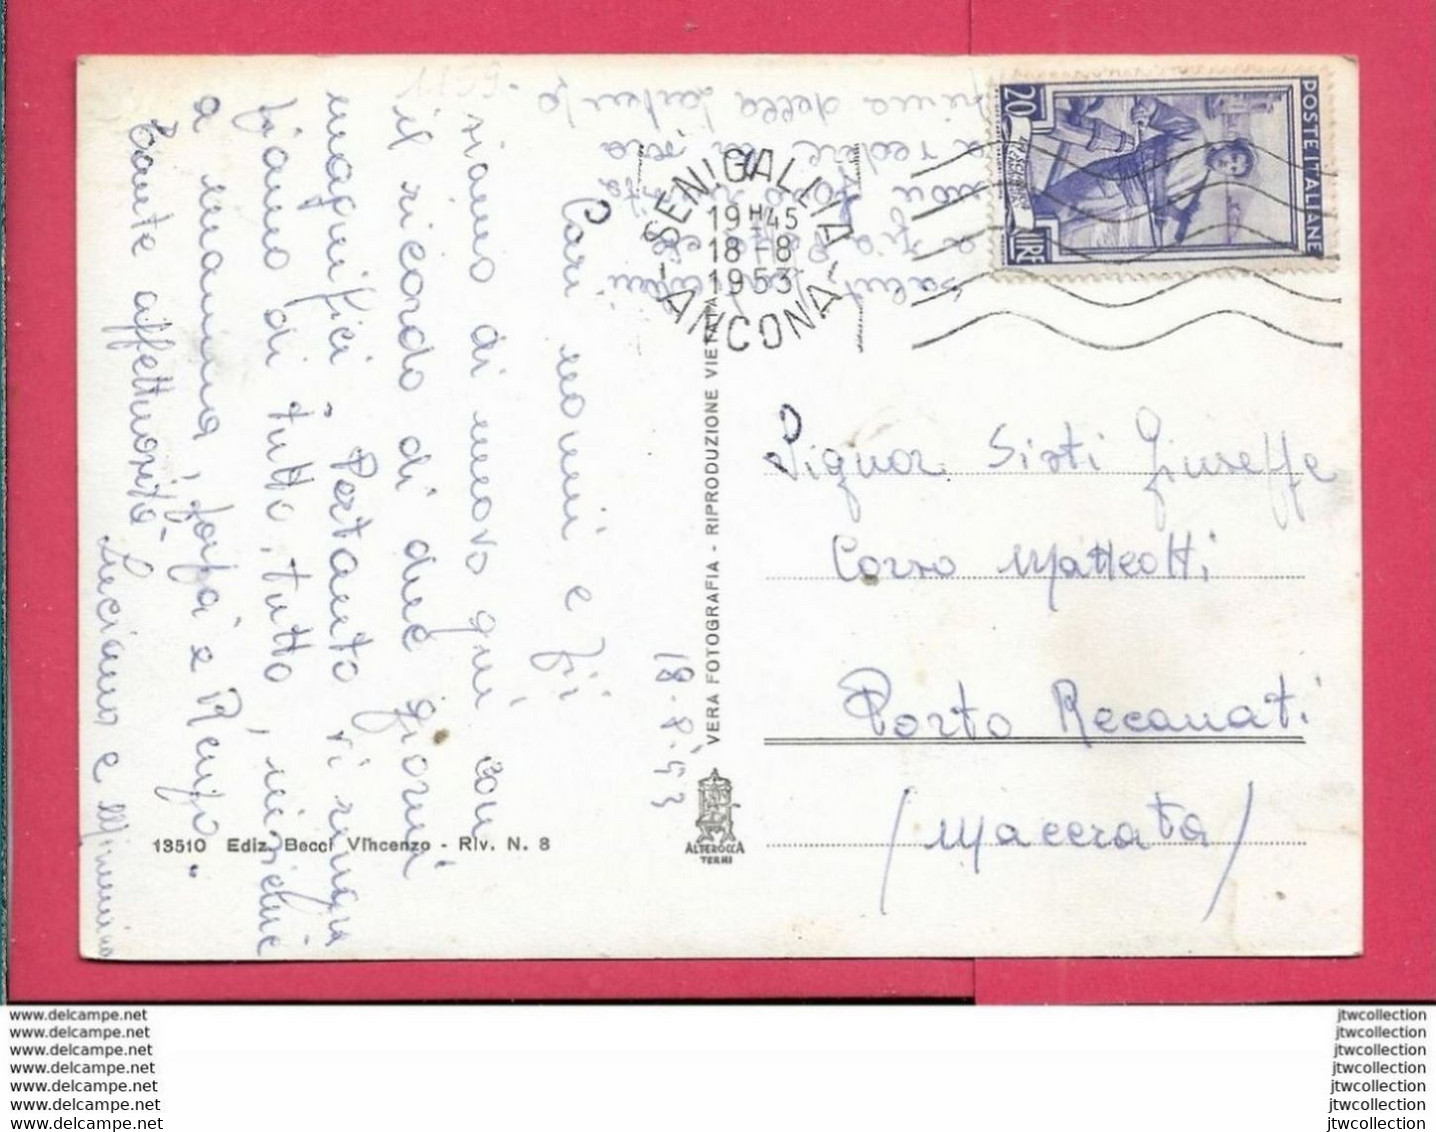 18-8-53
Cari nonni e zii
siamo di nuovo qui con
il ricordo di due giorni
magnifici. Pertanto vi ringra
ziamo di tutto, tutto, nonché
a mamma, papà e Renzo.
Tante affettuosità
Luciana e Mimmo
prima della partenza
a vedere la
Saluti
SENIGALLIA
19 H 45
18-8
1953
ANCONA
20
LIRE
POSTE ITALIANE
VERA FOTOGRAFIA - RIPRODUZIONE VIETATA
ALTEROCCA
TERNI
Signor Sisti Giuseppe
Corso Matteotti
Porto Recanati
(Macerata)
13510 Ediz. Becci Vincenzo - Riv. N. 8
www.delcampe.net
www.delcampe.net
www.delcampe.net
www.delcampe.net
www.delcampe.net
www.delcampe.net
www.delcampe.net
jtwcollection
jtwcollection
jtwcollection
jtwcollection
jtwcollection
jtwcollection
jtwcollection